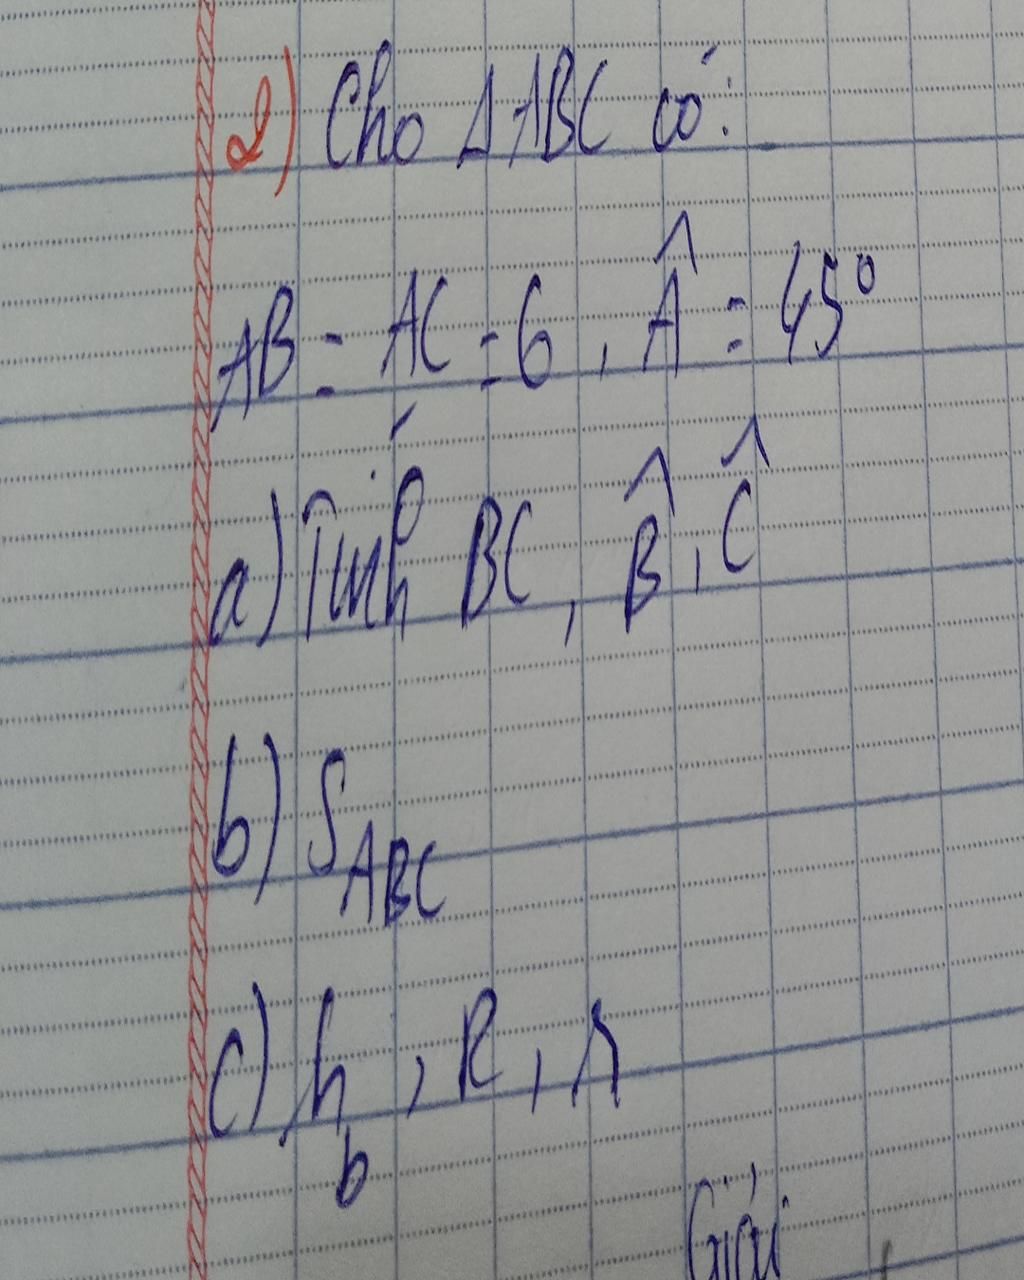 2) Cho ΔABC có:
AB = AC = 6, Â = 45°
a) Tính BC, B̂, Ĉ
b) S_ABC
c) h_b, R, r
Giải